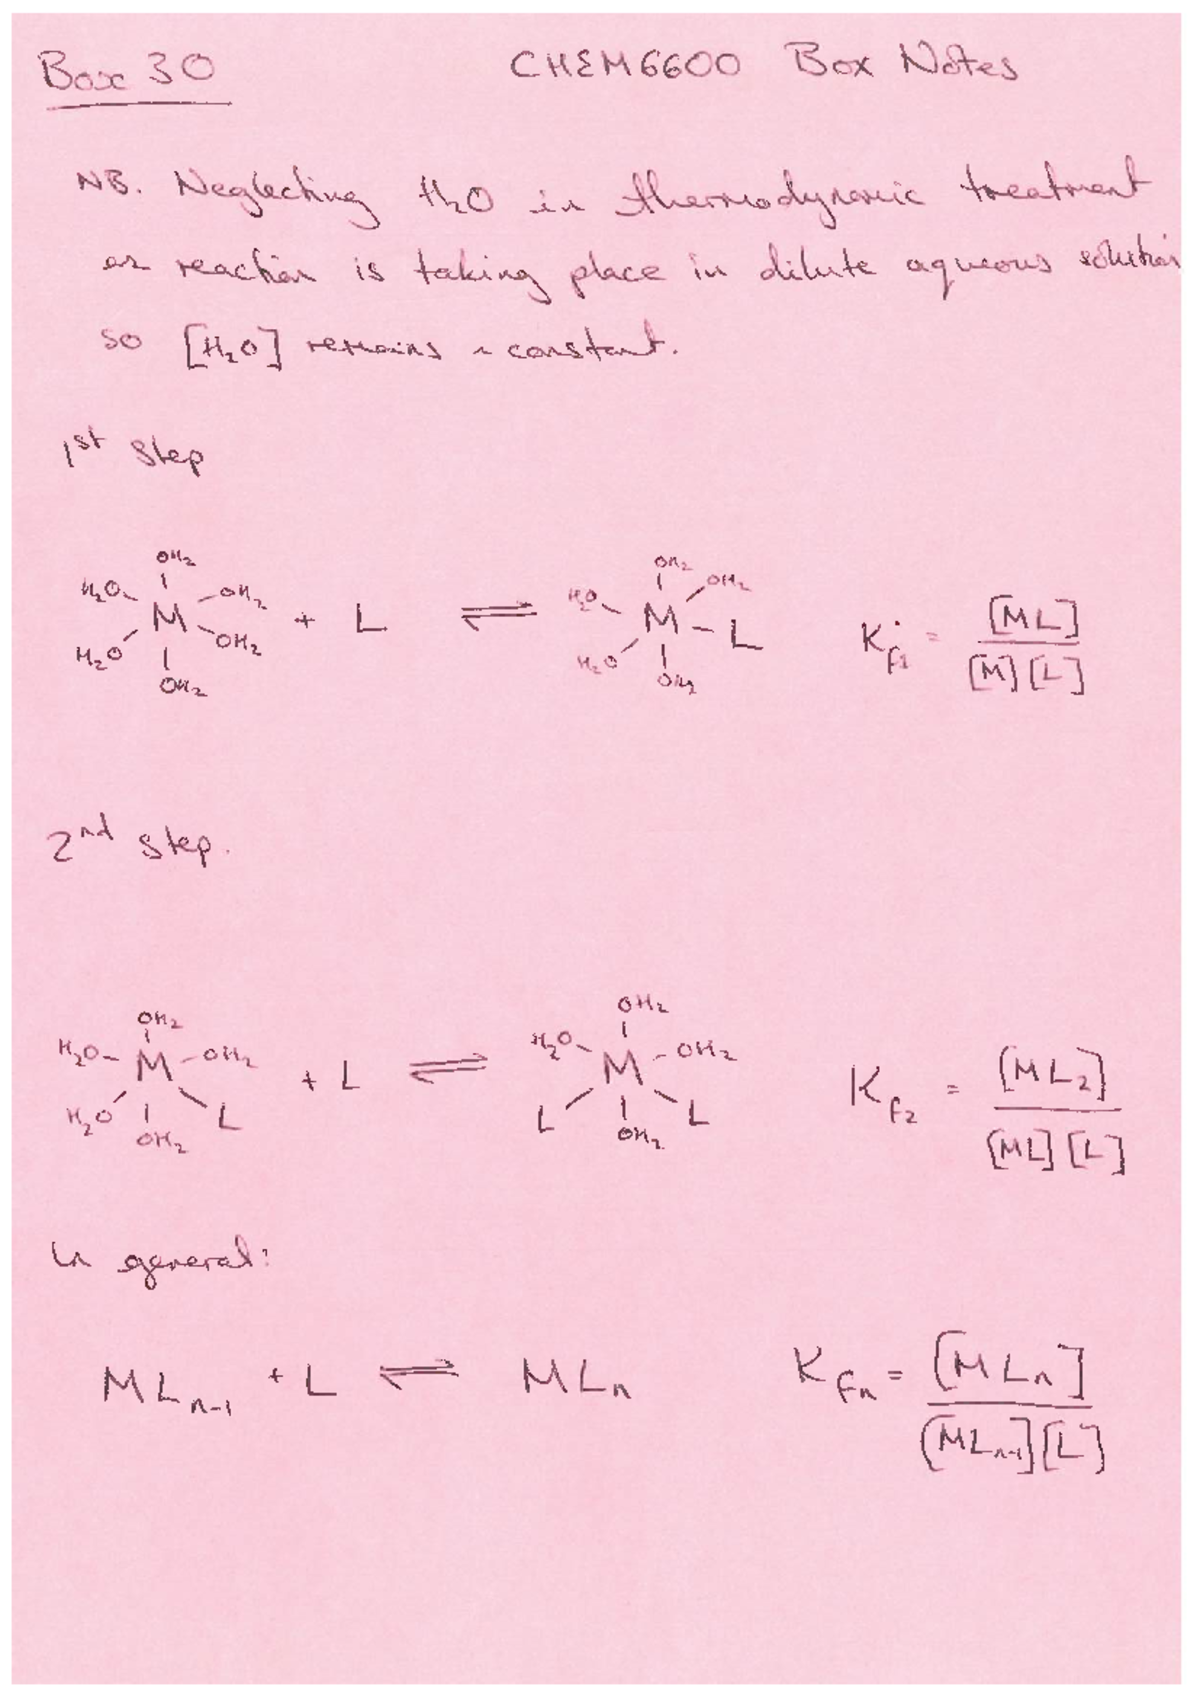 Box 30 CHEM6600 Box Notes
NB. Neglecting H₂O in thermodynamic treatment
as reaction is taking place in dilute aqueous solution
so [H₂O] remains ~ constant.
1st step
OH₂ OH₂
H₂O OH₂ H₂O OH₂
M + L ⇌ M L K_f1 = [ML] / [M][L]
H₂O OH₂ H₂O
OH₂ OH₂
2nd step.
OH₂ OH₂
H₂O M OH₂ + L ⇌ H₂O M OH₂ K_f2 = [ML₂] / [ML][L]
H₂O L L L
OH₂ OH₂
In general:
MLₙ₋₁ + L ⇌ MLₙ K_fn = [MLₙ] / [MLₙ₋₁][L]